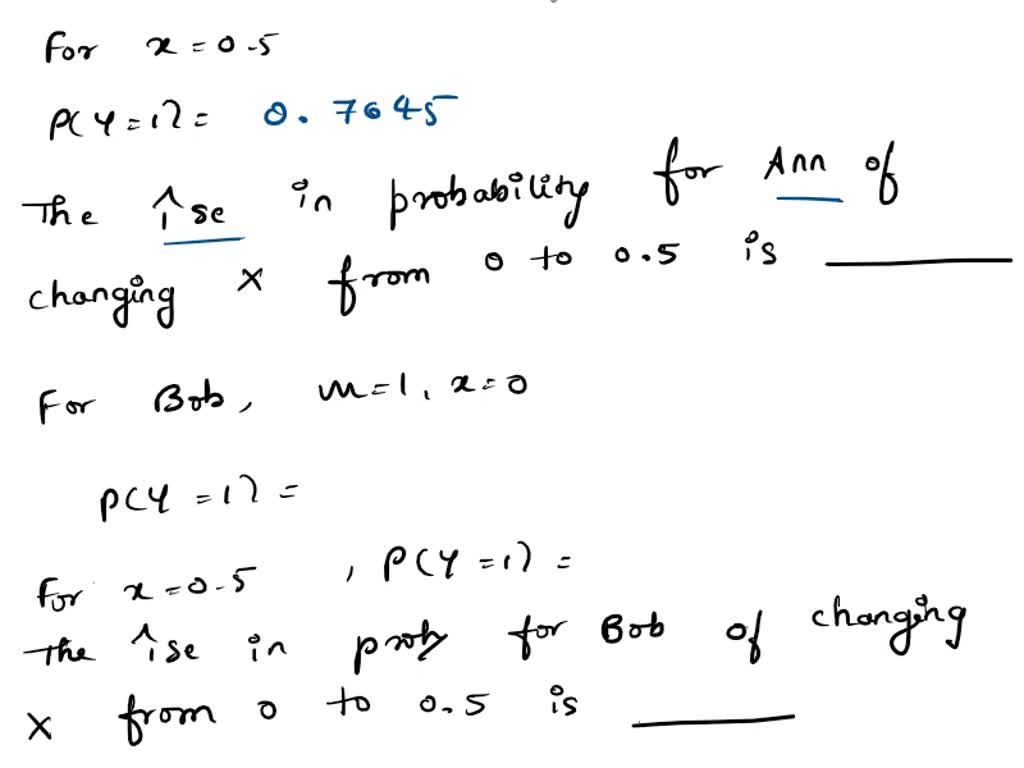 For x = 0.5
P(Y=1) = 0.7645
The ↑se in probability for Ann of
changing X from 0 to 0.5 is ______
For Bob, m=1, x=0
P(Y=1) =
For x=0.5, P(Y=1) =
The ↑se in prob for Bob of changing
X from 0 to 0.5 is ______